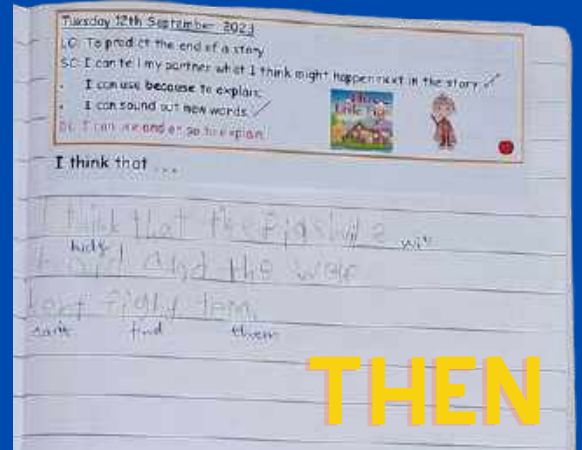 Tuesday 12th September 2023
LO: To predict the end of a story
SC: I can tell my partner what I think might happen next in the story
I can use because to explain.
I can sound out new words.
I can use and or so to explain
Three Little Pigs
I think that ...
I think that the pigs will
hide
and the
can't find them
THEN